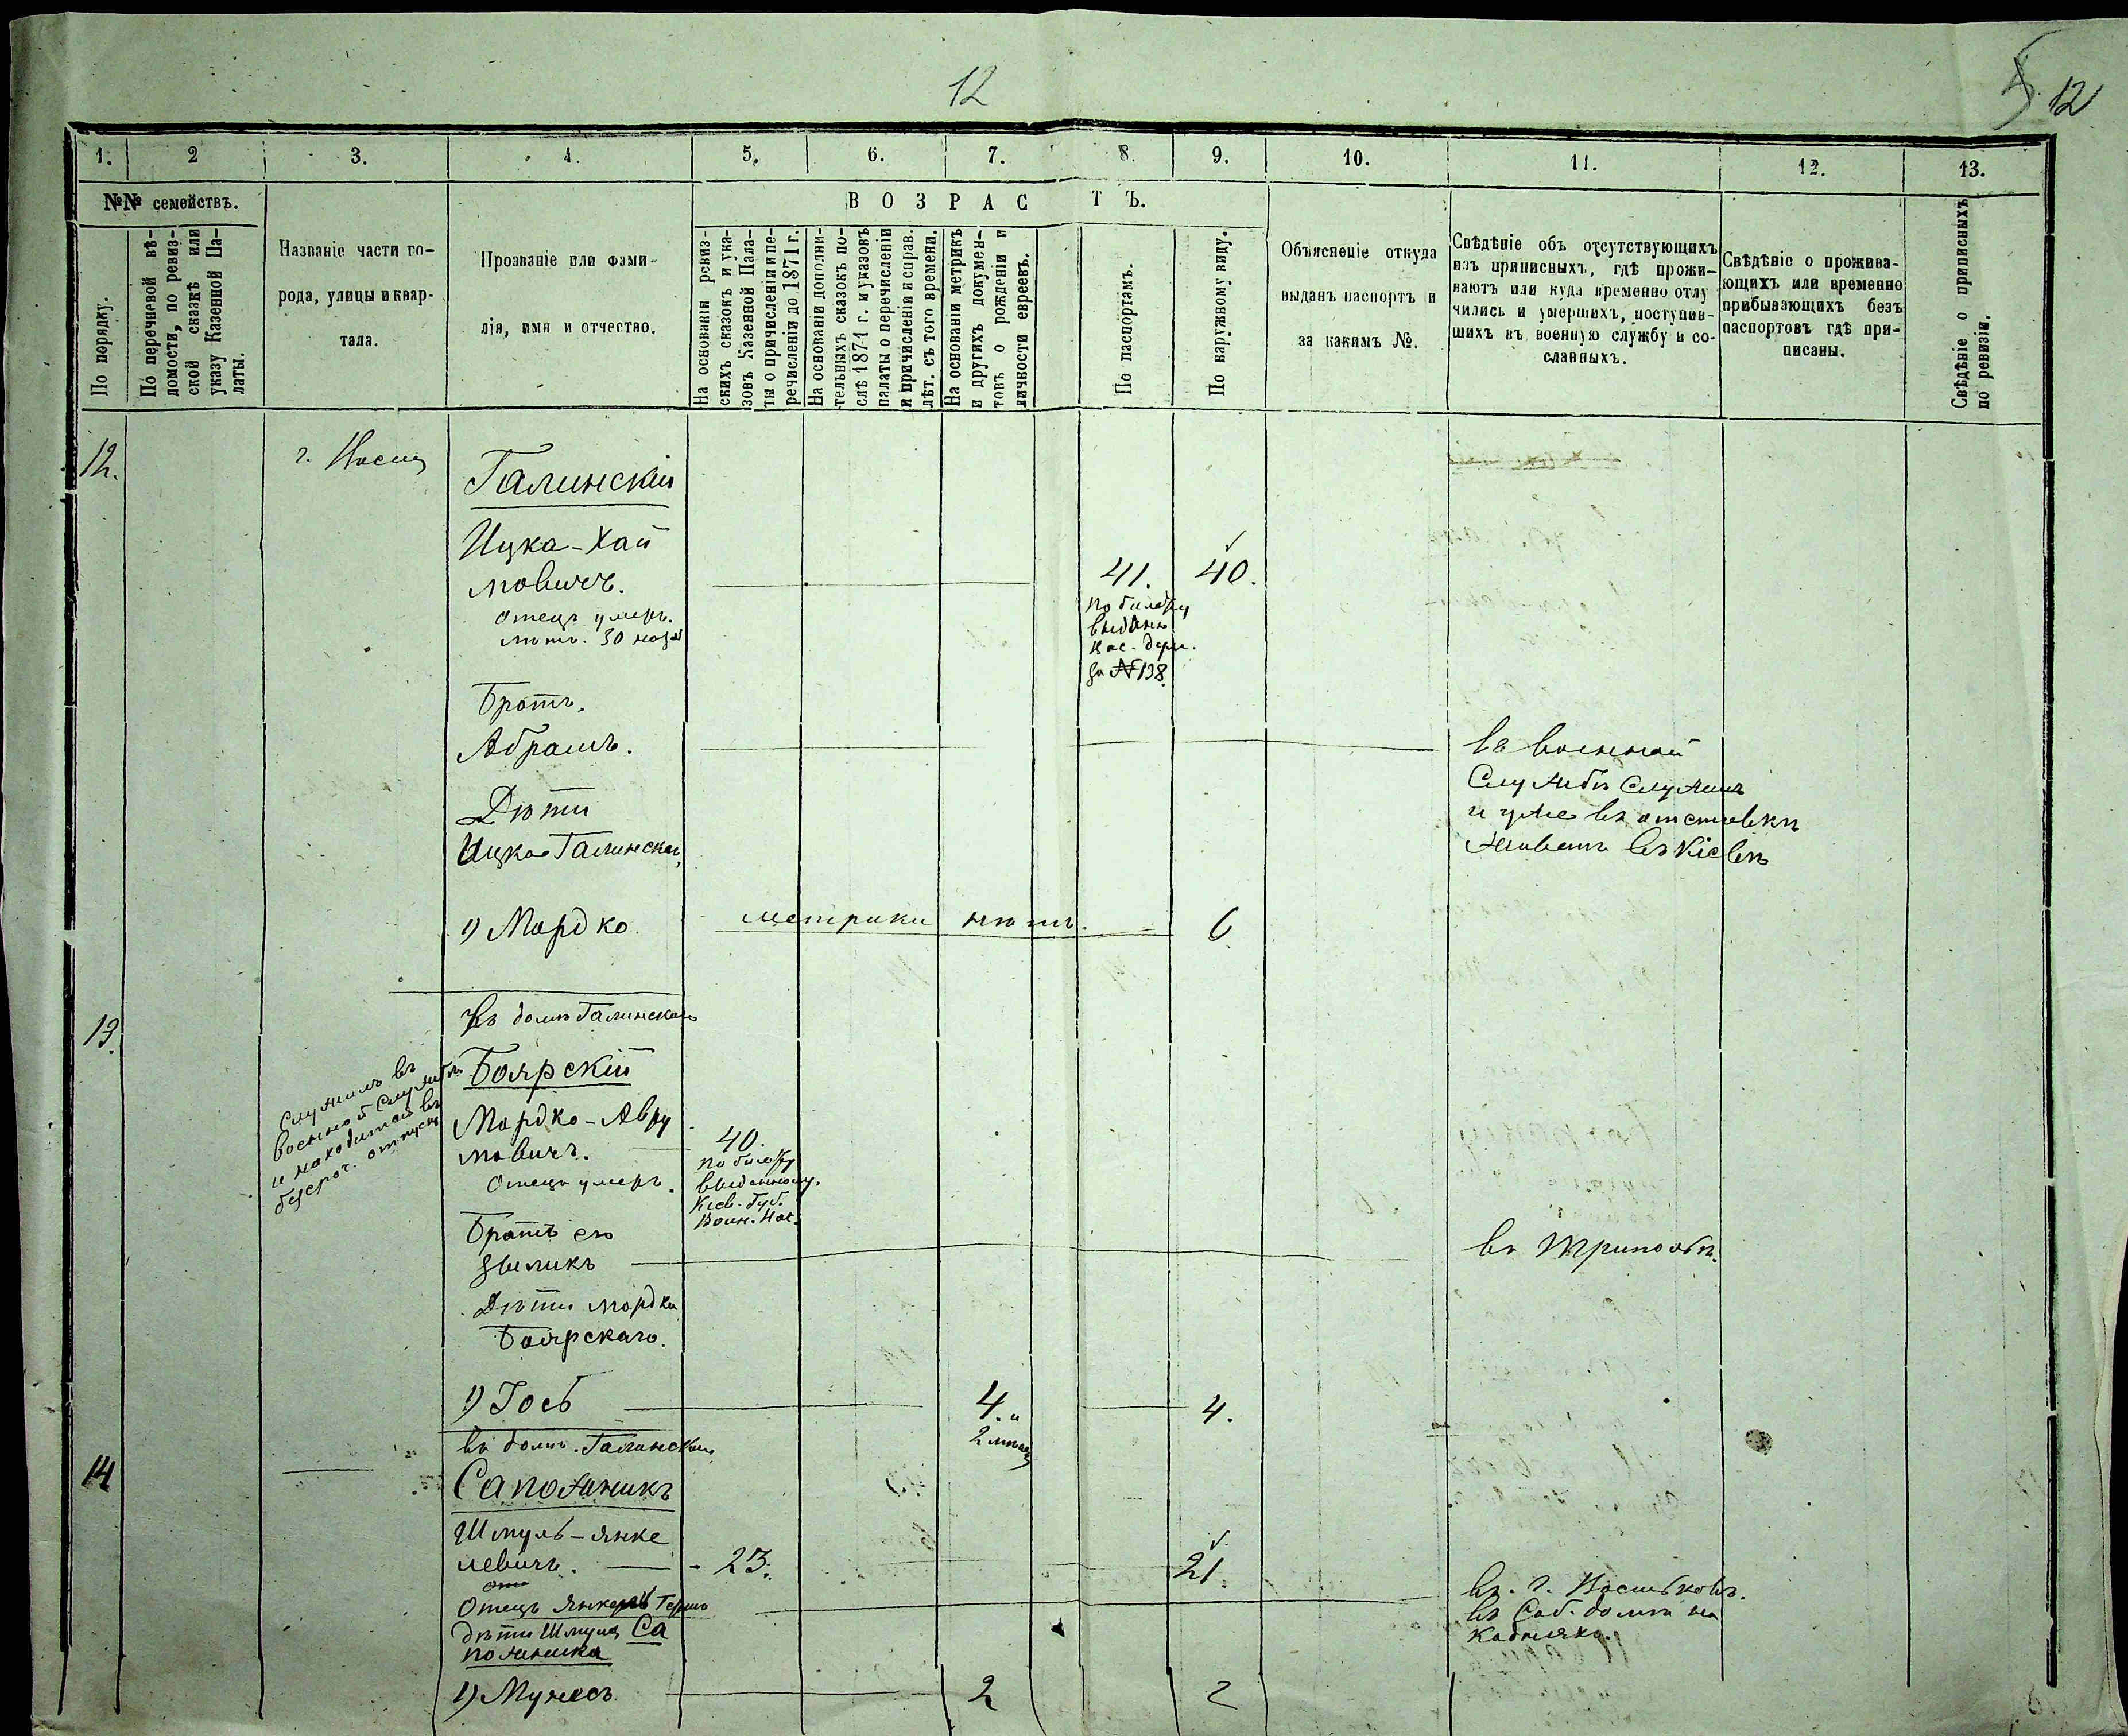 12
12
1.
2
3.
4.
5.
6.
7.
8.
9.
10.
11.
12.
13.
№№ семействъ.
По порядку.
По перечневой вѣ-
домости, по ревиз-
ской сказкѣ или
указу Казенной Па-
латы.
Названіе части го-
рода, улицы и квар-
тала.
Прозваніе или фами-
лія, имя и отчество.
ВОЗРАСТЪ.
На основаніи ревиз-
скихъ сказокъ и ука-
зовъ Казенной Пала-
ты о причисленіи и пе-
речисленіи до 1871 г.
На основаніи дополни-
тельныхъ сказокъ по-
слѣ 1871 г. и указовъ
палаты о перечисленіи
и причисленіи и справ.
лѣт. съ того времени.
На основаніи метрикъ
и другихъ докумен-
товъ о рожденіи и
личности евреевъ.
По паспортамъ.
По наружному виду.
Объясненіе откуда
выданъ паспортъ и
за какимъ №.
Свѣдѣніе объ отсутствующихъ
изъ приписныхъ, гдѣ прожи-
ваютъ или куда временно отлу
чились и умершихъ, поступив-
шихъ въ военную службу и со-
сланныхъ.
Свѣдѣніе о прожива-
ющихъ или временно
прибывающихъ безъ
паспортовъ гдѣ при-
писаны.
Свѣдѣніе о приписныхъ
по ревизіи.
12.
Галинскій
Ицка-Хай
мовичъ.
41.
40.
Отецъ умеръ.
по билету
выданн
Вас.
за №138.
Братъ.
Абрамъ.
въ военной
Службѣ Служилъ
и уже въ отставкѣ
живетъ въ Кіевѣ
Дѣти
Ицка Галинскаго
1) Мордко
метрики нѣтъ.
6
13.
Въ домѣ Галинскаго
Служилъ въ
военной Службѣ
и находится въ
безсроч. отпуску
Боярскій
Мордко-Авру
мовичъ.
40.
по билету
выданному.
Кіев. Губ.
Воин. Нач.
Отецъ умеръ.
Братъ его
Зыликъ
въ Трипольѣ.
Дѣти Мордка
Боярскаго.
1) Іось
4. и
2 мѣсяц
4.
14
въ домѣ Галинскаго
Сапожникъ
Шмуль-Янке
левичъ.
23.
21.
Отецъ Янкель Герш
въ г. Васильковѣ.
въ Соб. домѣ на
дѣти Шмуля Са
пожника
1) Мунесъ
2
2